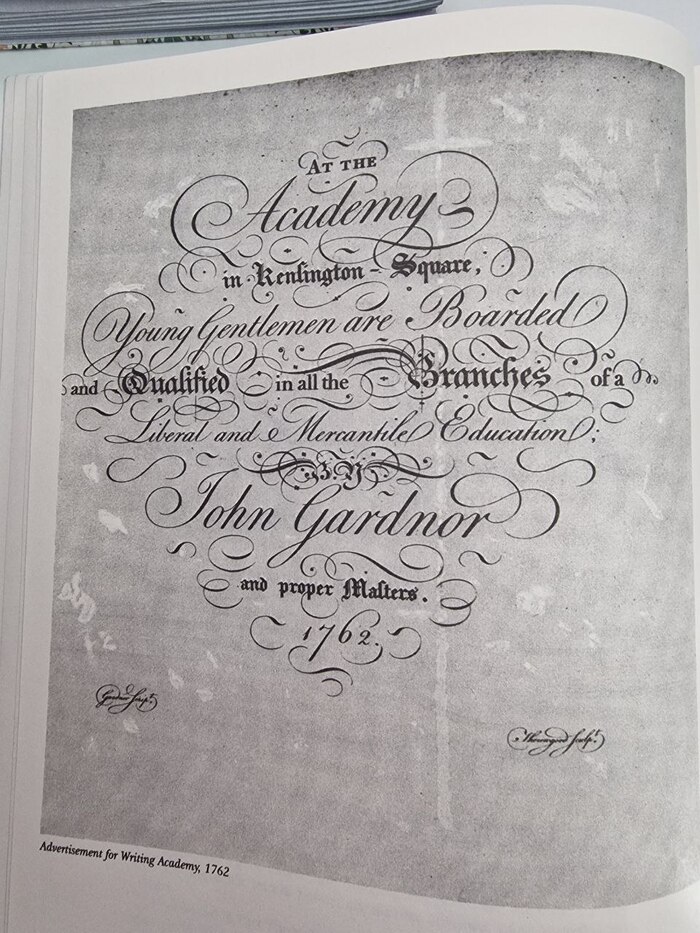 AT THE
Academy
in Kenſington - Square,
Young Gentlemen are Boarded
and Qualified in all the Branches of a
Liberal and Mercantile Education;
By
John Gardnor
and proper Maſters.
1762.
Sculpt.
Thorowgood sculpt.
Advertisement for Writing Academy, 1762